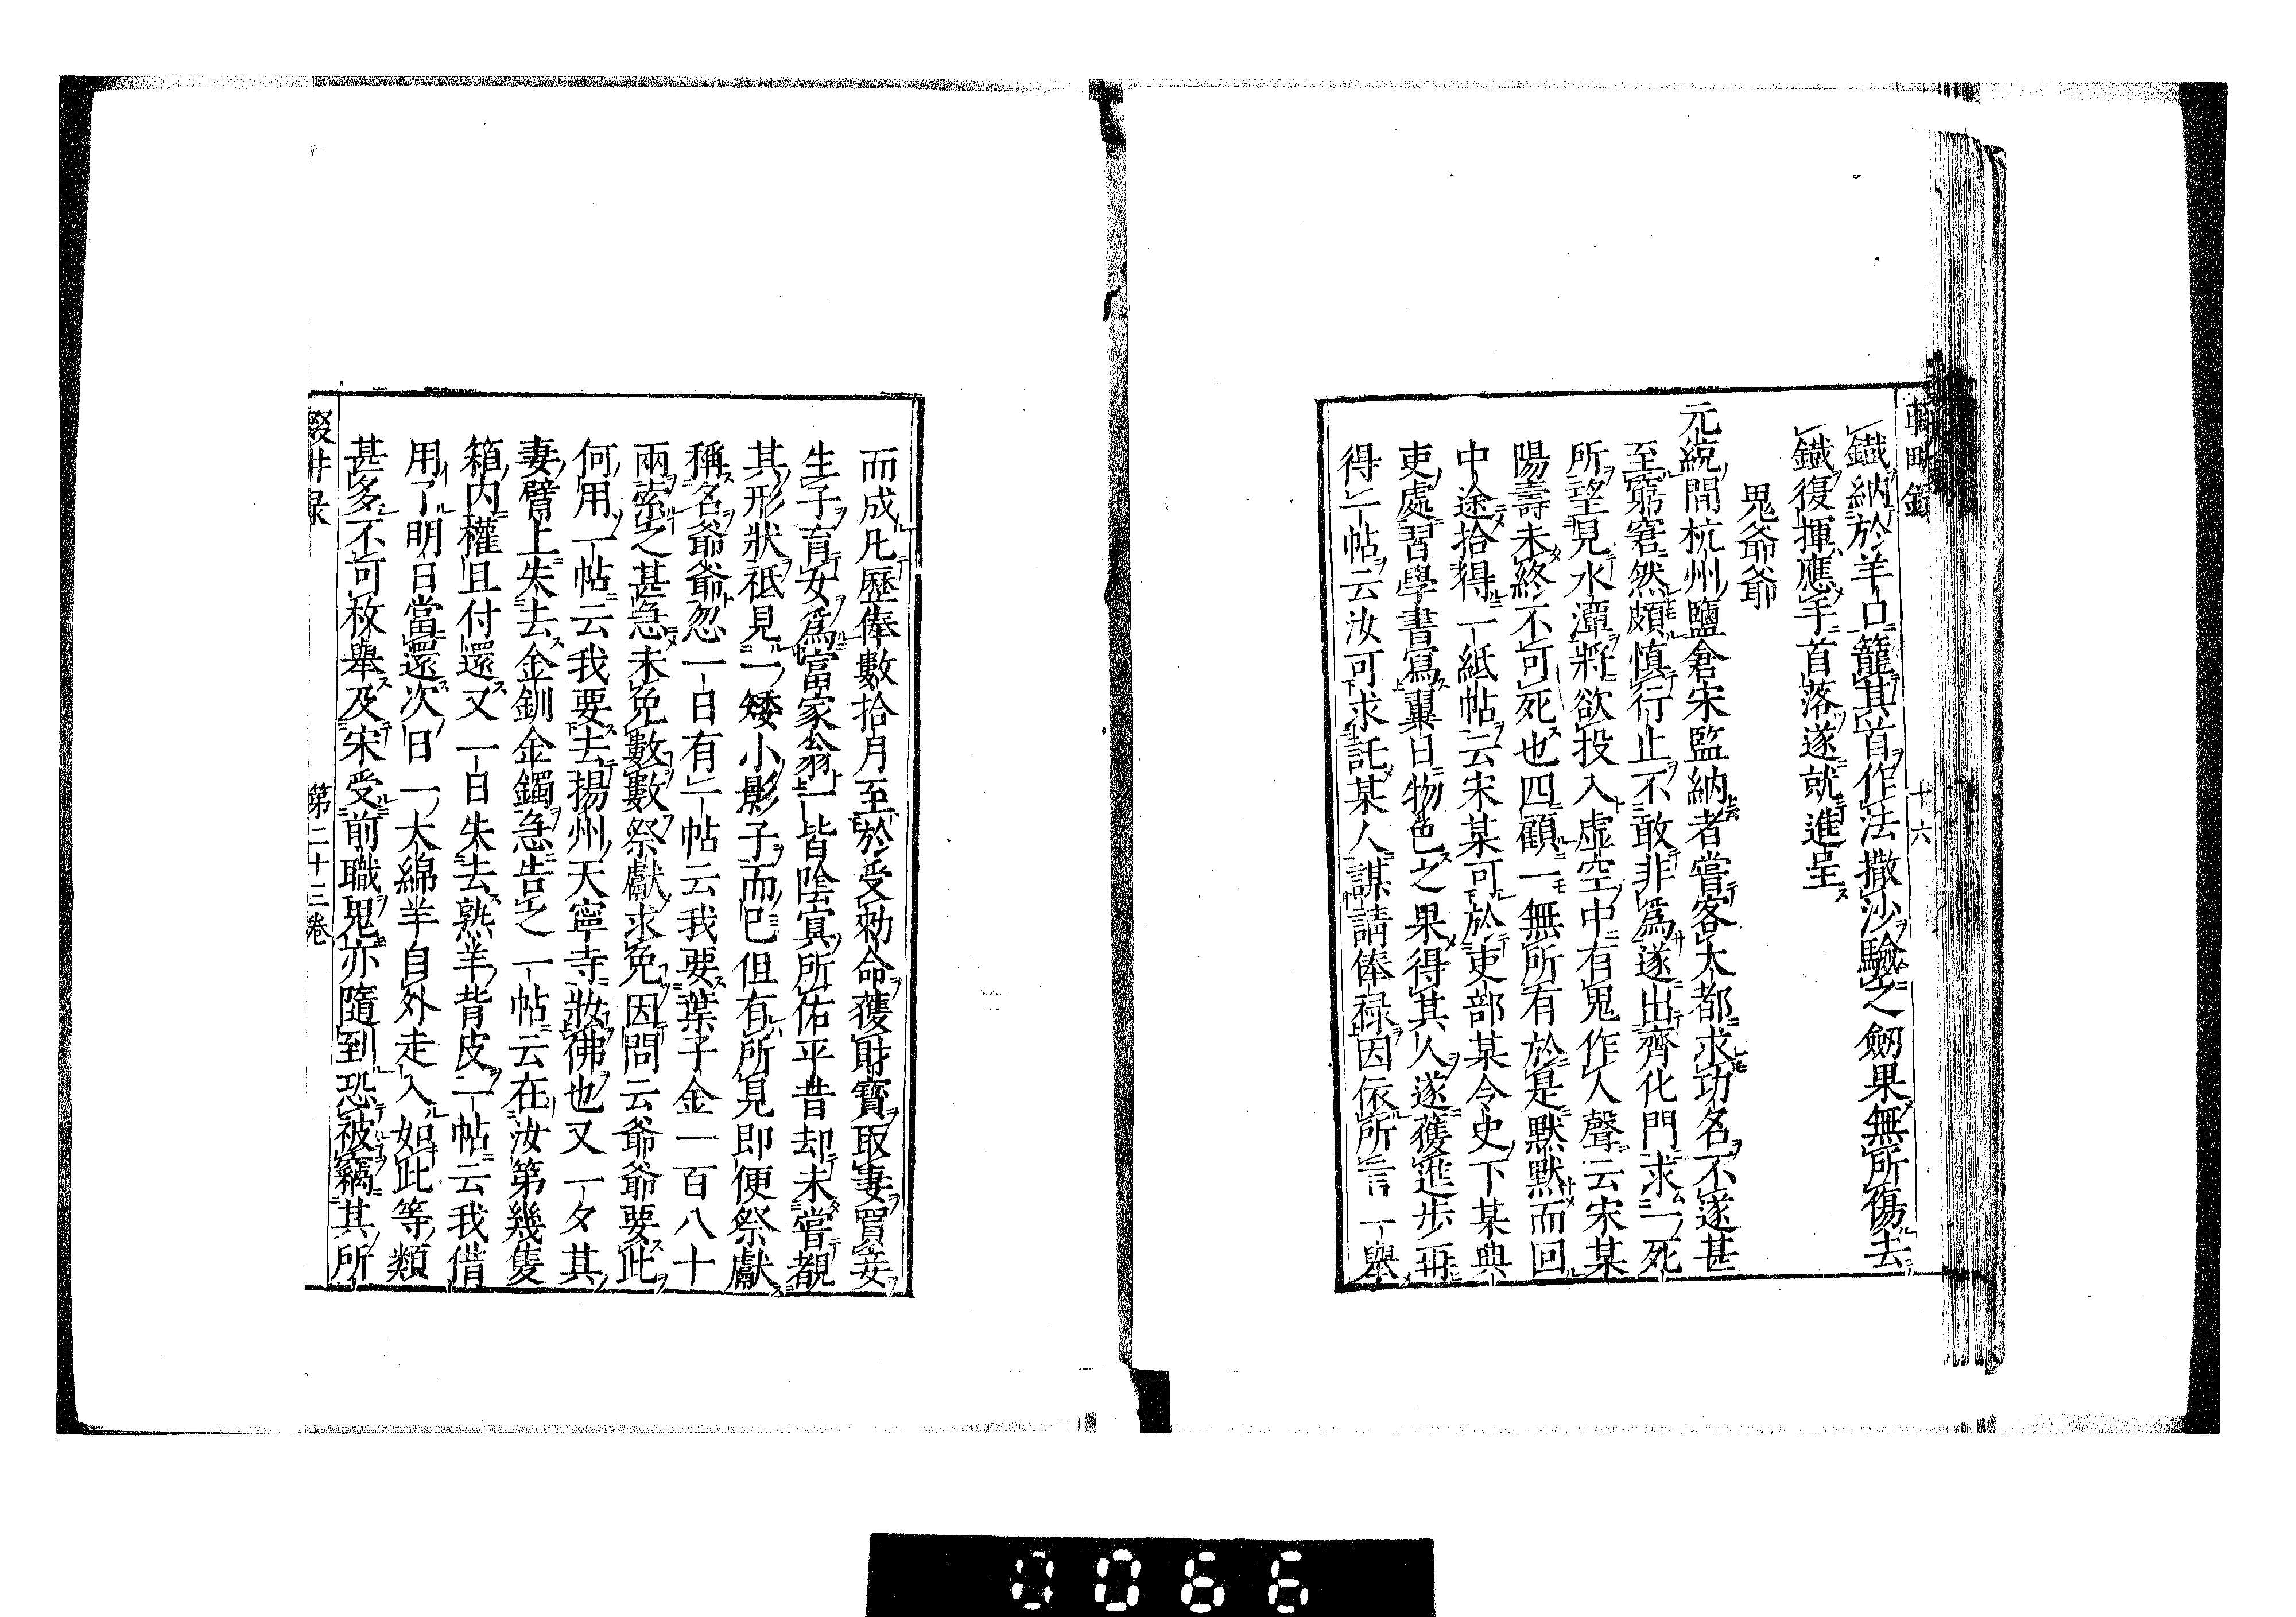 十六
鐵納於羊口籠其首作法撒沙驗之劒果無所傷去
鐵復揮應手首落遂就進呈
鬼爺爺
元統間杭州鹽倉宋監納者嘗客大都求功名不遂甚
至窮窘然頗愼行止不敢非爲遂出齊化門求一死
所望見水潭將欲投入虛空中有鬼作人聲云宋某
陽壽未終不可死也四顧一無所有於是默默而回
中途拾得一紙帖云宋某可於吏部某令史下某典
吏處習學書寫翼日物色之果得其人遂獲進步再
得一帖云汝可求託某人謀請俸祿因依所言一舉
而成凡歷俸數拾月至於受勑命獲財寶取妻買妾
生子育女爲富家翁一皆陰冥所佑平昔却未嘗覩
其形狀祇見一矮小影子而已但有所見即便祭獻
稱名爺爺忽一日有一帖云我要葉子金一百八十
兩索之甚急未免數數祭獻求免因問云爺爺要此
何用一帖云我要去揚州天寧寺妝佛也又一夕其
妻臂上失去金釧金鐲急告之一帖云在汝第幾隻
箱内權且付還又一日失去熟羊背皮一帖云我借
用了明日當還次日一大綿羊自外走入如此等類
甚多不可枚舉及宋受前職鬼亦隨到恐被竊其所
第二十三卷
0066